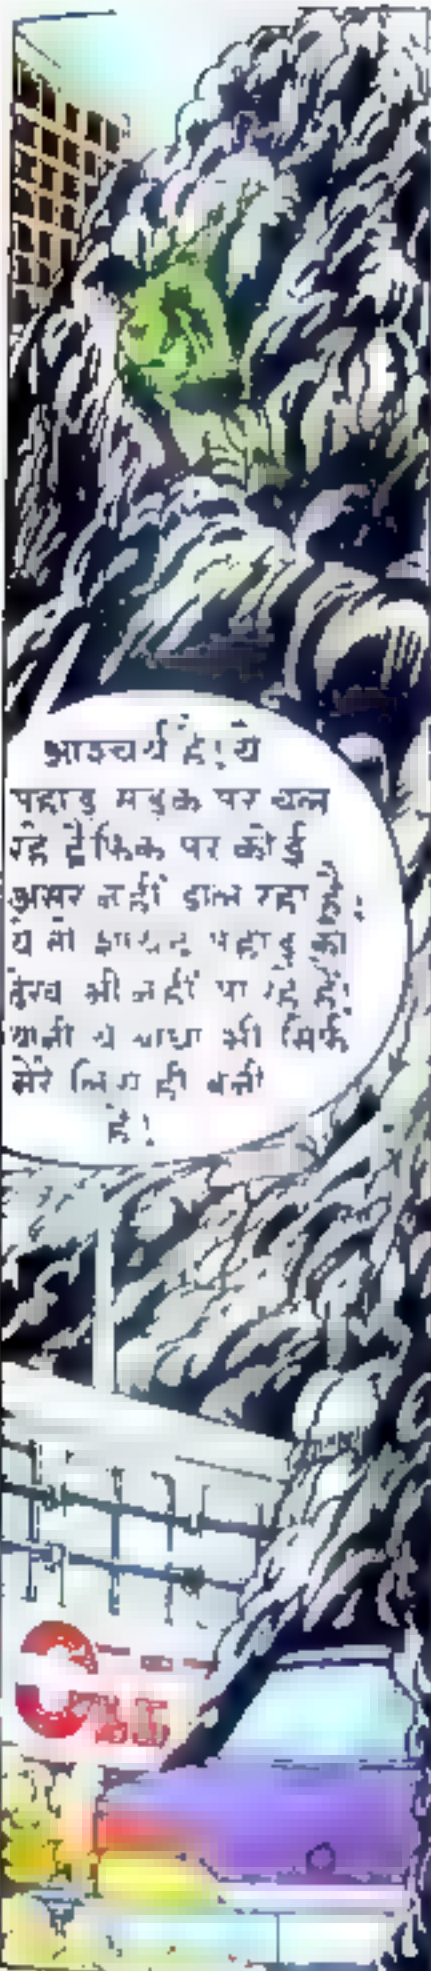 आश्चर्य है! ये
पहाड़ सड़क पर चल
रहे ट्रैफिक पर कोई
असर नहीं डाल रहा है;
ये तो शायद पहाड़ को
देख भी नहीं पा रहे हैं!
यानी ये बाधा भी सिर्फ
मेरे लिए ही बनी
है!